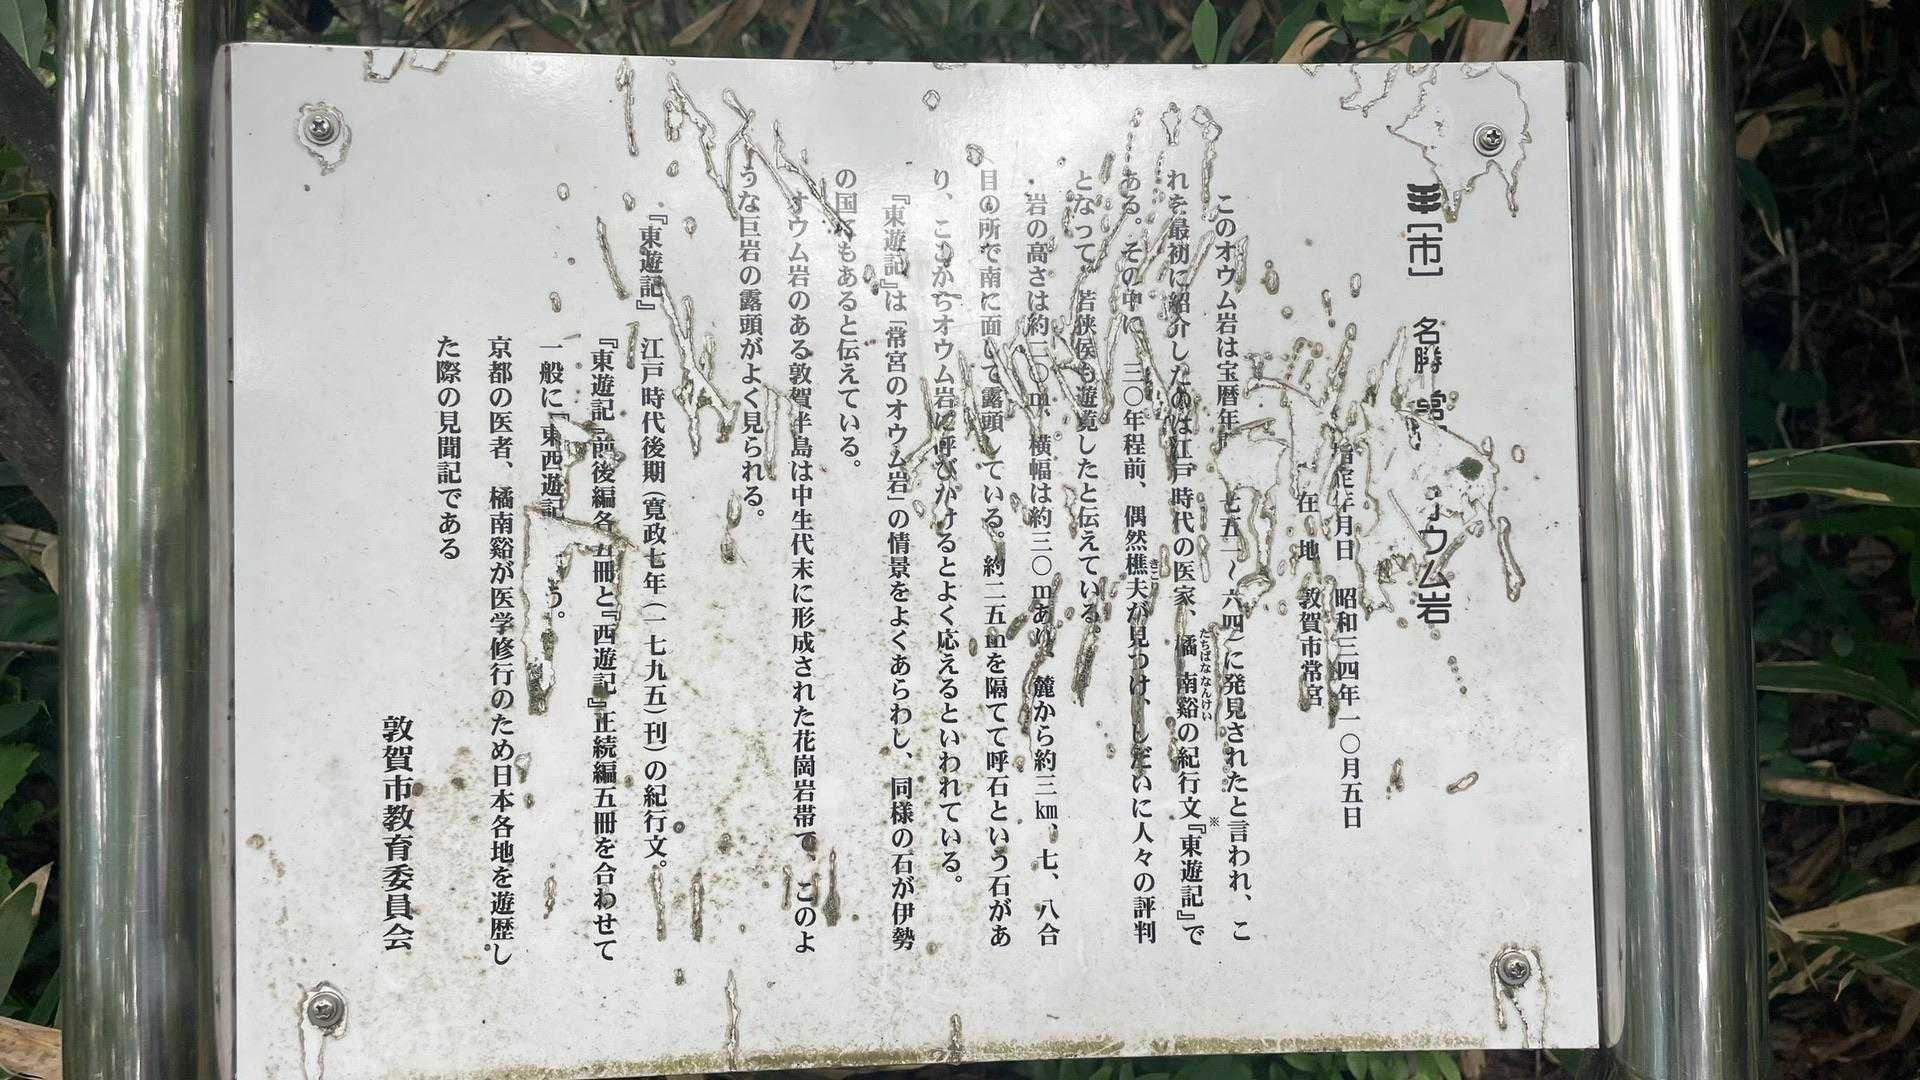 [市] 名勝 常 オウム岩
指定年月日 昭和三四年一〇月五日
在地 敦賀市常宮
このオウム岩は宝暦年 七五一～六四)に発見されたと言われ、こ
れを最初に紹介したのは江戸時代の医家、橘南谿の紀行文※『東遊記』で
たちばななんけい
ある。その中に、三〇年程前、偶然樵夫が見つけ、しだいに人々の評判
きこり
となって、若狭侯も遊覧したと伝えている。
岩の高さは約二〇m、横幅は約三〇mあり、麓から約三km、七、八合
目の所で南に面して露頭している。約二五mを隔てて呼石という石があ
り、ここからオウム岩に呼びかけるとよく応えるといわれている。
『東遊記』は「常宮のオウム岩」の情景をよくあらわし、同様の石が伊勢
の国にもあると伝えている。
オウム岩のある敦賀半島は中生代末に形成された花崗岩帯で、このよ
うな巨岩の露頭がよく見られる。
『東遊記』 江戸時代後期(寛政七年(一七九五)刊)の紀行文。
『東遊記』前後編各五冊と『西遊記』正続編五冊を合わせて
一般に『東西遊記 う。
京都の医者、橘南谿が医学修行のため日本各地を遊歴し
た際の見聞記である
敦賀市教育委員会